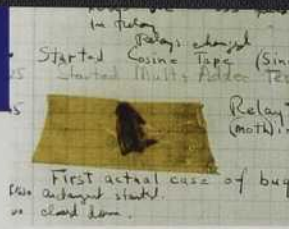 in relay
Relays changed
Started Cosine Tape (Sin
Started Mult+ Adder Tes
Relay
(moth) in
First actual case of bug
antangent started.
closed down.